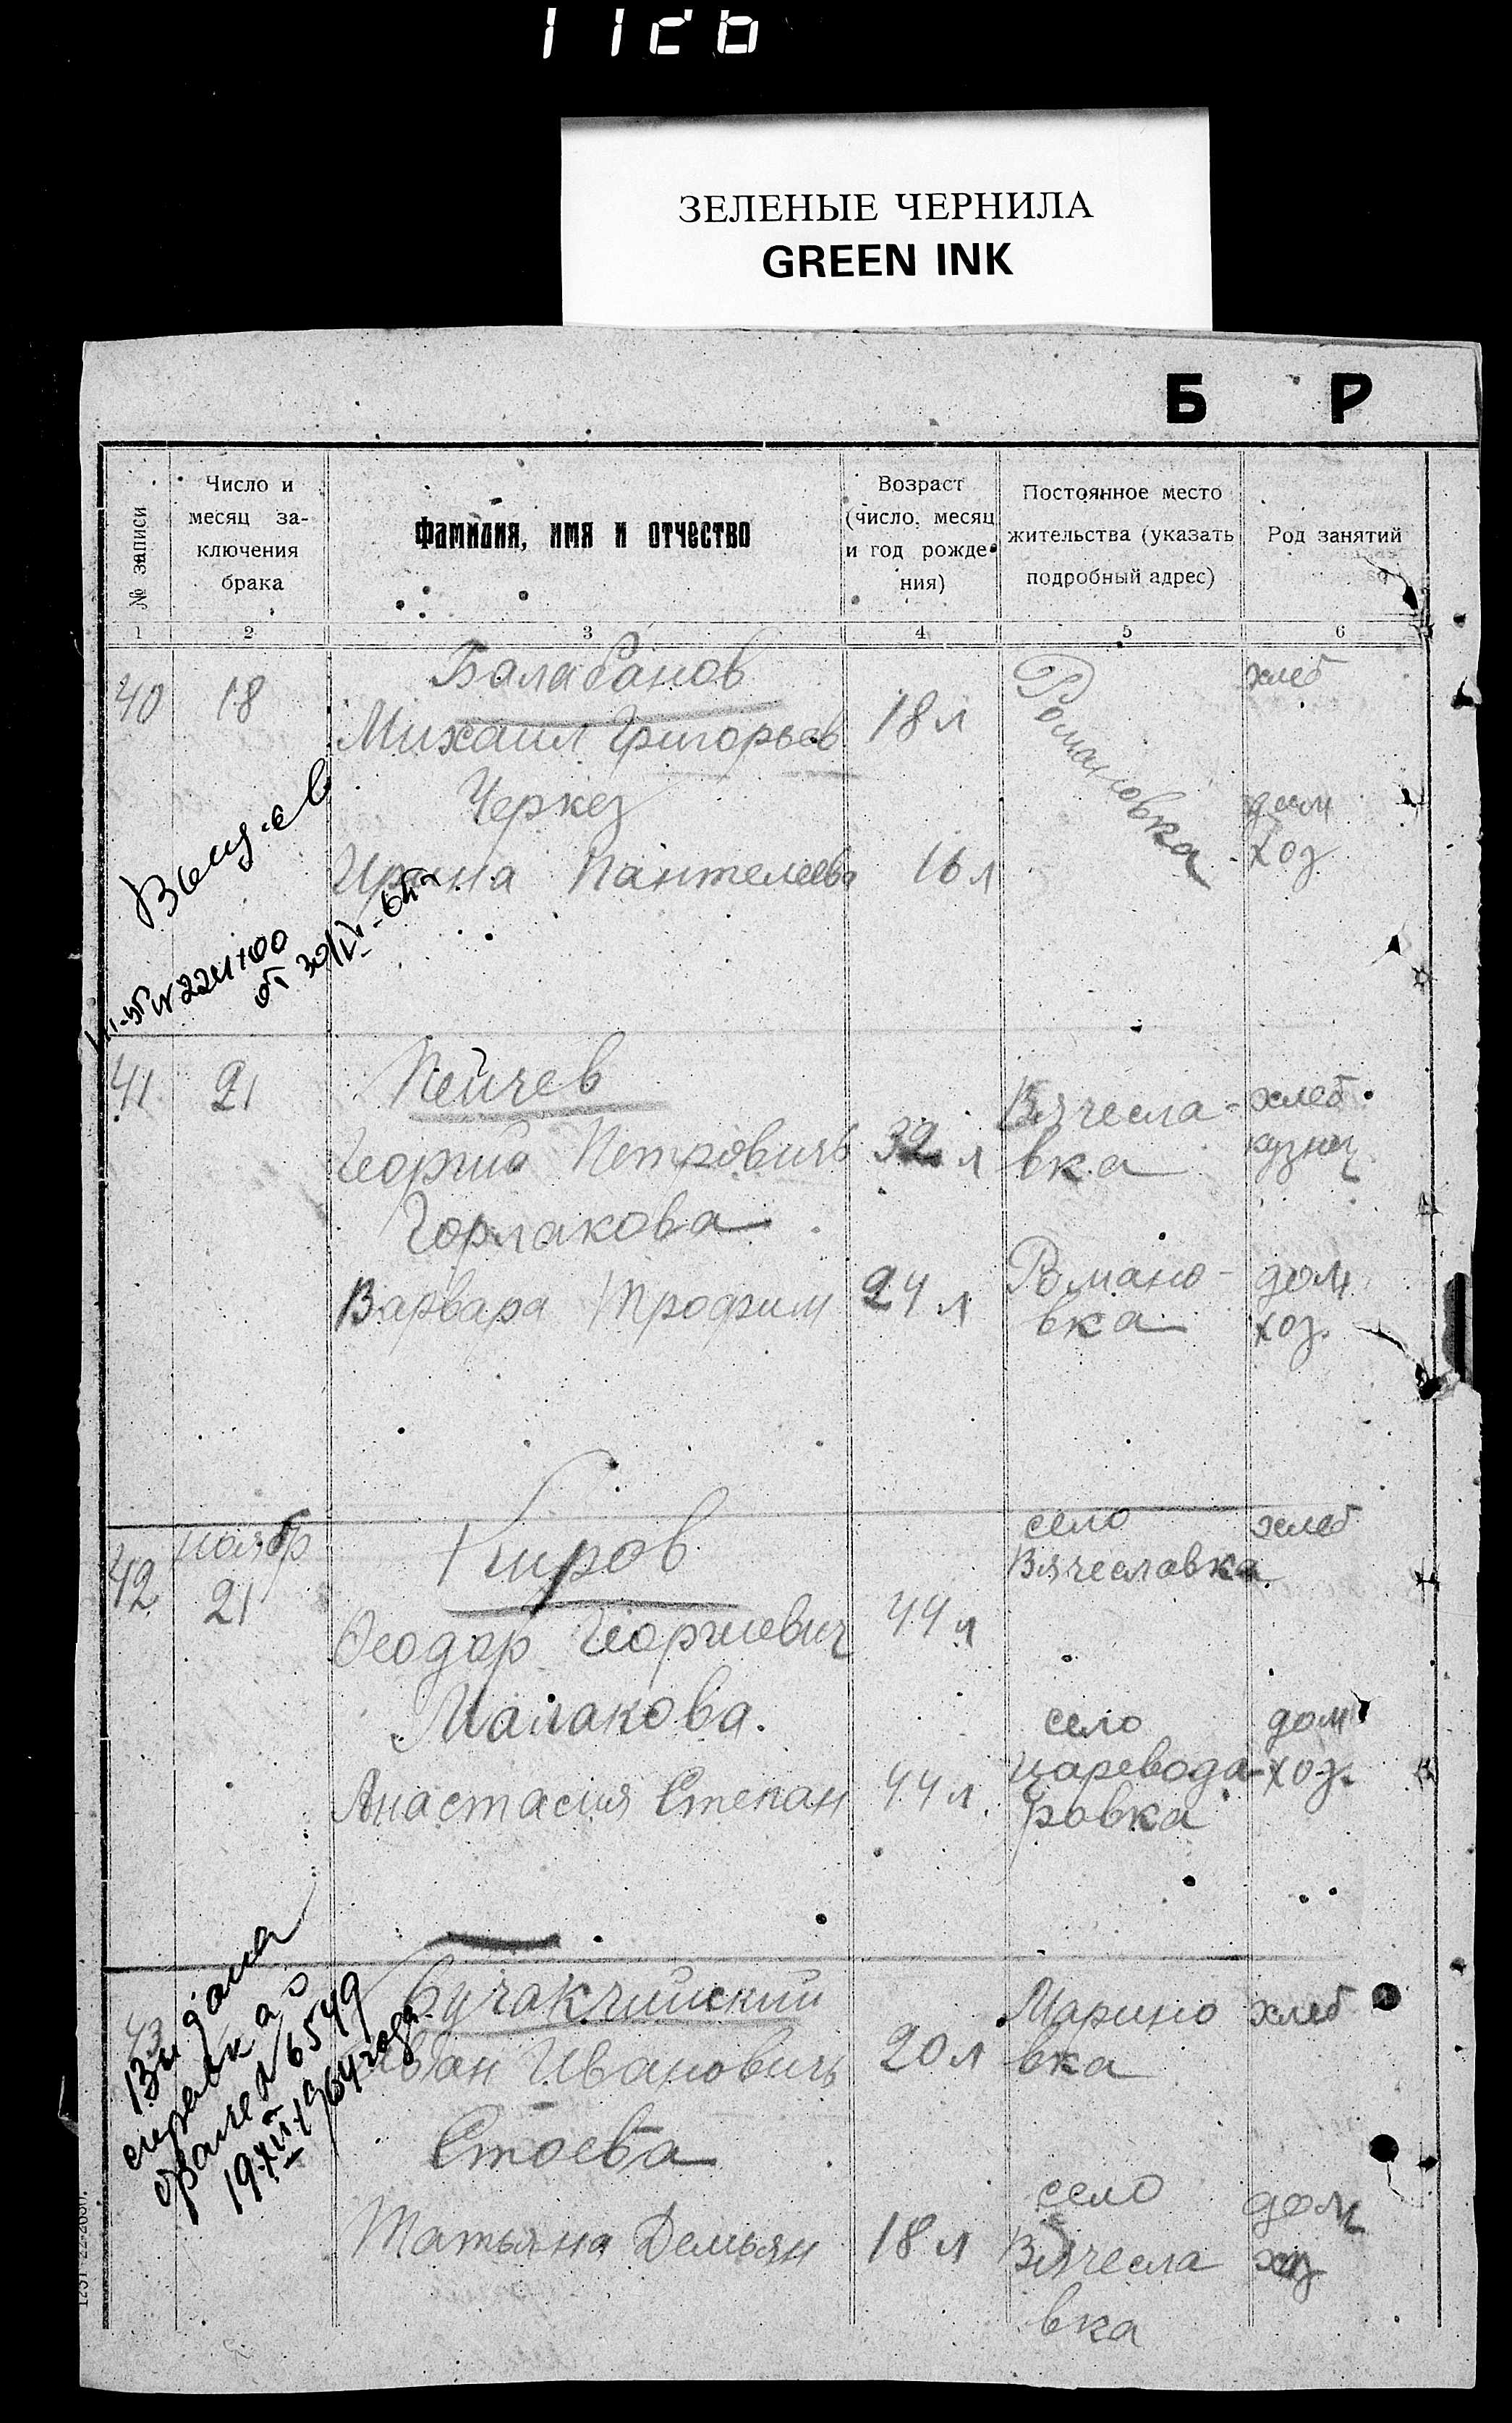 ЗЕЛЕНЫЕ ЧЕРНИЛА
GREEN INK
Б Р
№ записи
Число и
месяц за-
ключения
брака
Фамилия, имя и отчество
Возраст
(число, месяц
и год рожде-
ния)
Постоянное место
жительства (указать
подробный адрес)
Род занятий
1 2 3 4 5 6
Балабанов
хлеб
40 18
Михаил Григорьев 18 л
Романовка
Черкез
дом
хоз
Ирина Пантелеева 16 л
от 30/IV-
41 21
Пейчев
Вячесла- хлеб.
Георгий Петровичъ 32 л вка кузнец
Горлакова
Романо- дом
Варвара Трофим 24 л вка хоз.
село хлеб
ноябр
Киров
Вячеславка
42 21
Феодор Георгиевич 44 л
Малакова.
село дом
Анастасия Степан 44 л.
царевода- хоз.
ровка
43
Бучакчийский
Марино хлеб
Иван Ивановичъ 20 л вка
Выдана
справка о
браке № 6549
1964 года
Стоева
село дом
Татьяна Демьян 18 л Вячесла хоз
вка